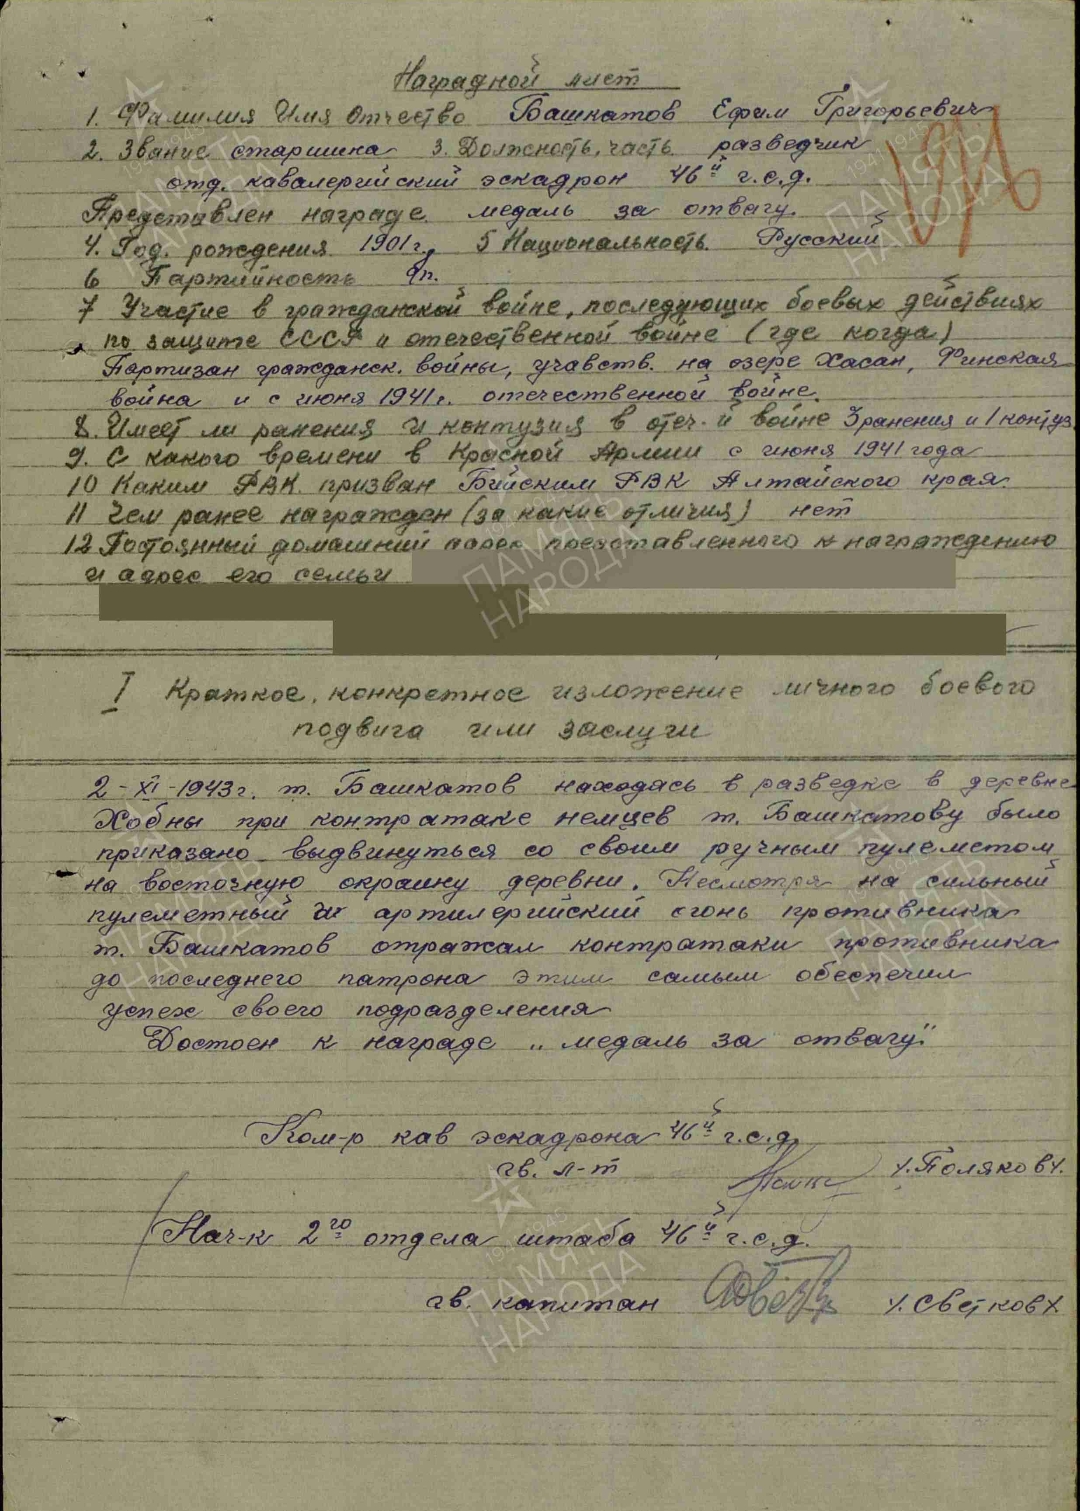 Наградной лист
1. Фамилия Имя Отчество Башкатов Ефим Григорьевич
2. Звание старшина 3. Должность, часть разведчик
отд. кавалерийский эскадрон 46й г.с.д.
194
Представлен награде медаль за отвагу.
4. Год. рождения 1901 г. 5 Национальность Русский
6 Партийность
7 Участие в гражданской войне, последующих боевых действиях
по защите СССР и отечественной войне (где когда)
Партизан гражданск. войны, учавств. на озере Хасан, Финская
война и с июня 1941 г. отечественной войне.
8. Имеет ли ранения и контузия в отеч-й войне 3 ранения и 1 контуз.
9. С какого времени в Красной Армии с июня 1941 года
10 Каким РВК. призван Бийским РВК Алтайского края.
11 Чем ранее награжден (за какие отличия) нет
12 Постоянный домашний адрес представленного к награждению
и адрес его семьи
I Краткое, конкретное изложение личного боевого
подвига или заслуги
2-XI-1943 г. т. Башкатов находясь в разведке в деревне
Хобны при контратаке немцев т. Башкатову было
приказано выдвинуться со своим ручным пулеметом
на восточную окраину деревни. Несмотря на сильный
пулеметный и артилерийский огонь противника
т. Башкатов отражал контратаки противника
до последнего патрона этим самым обеспечил
успех своего подразделения
Достоен к награде „медаль за отвагу".
Ком-р кав эскадрона 46й г.с.д.
гв. л-т /.Поляков/.
Нач-к 2го отдела штаба 46й г.с.д.
гв. капитан /.Светков/.
ПАМЯТЬ
НАРОДА
1941-1945